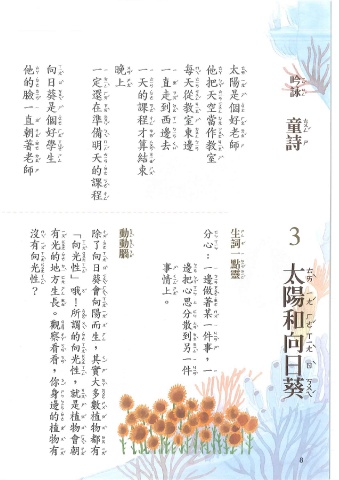 吟詠 童詩
3 太陽和向日葵
太陽是個好老師
他把天空當作教室
每天從教室東邊
一直走到西邊去
一天的課程才算結束
晚上
一定還在準備明天的課程
向日葵是個好學生
他的臉一直朝著老師
生詞一點靈
分心：一邊做著某一件事，一
邊把心思分散到另一件
事情上。
動動腦
除了向日葵會向陽而生，其實大多數植物都有
「向光性」哦！所謂的向光性，就是植物會朝
有光的地方生長。觀察看看，你身邊的植物有
沒有向光性？
8